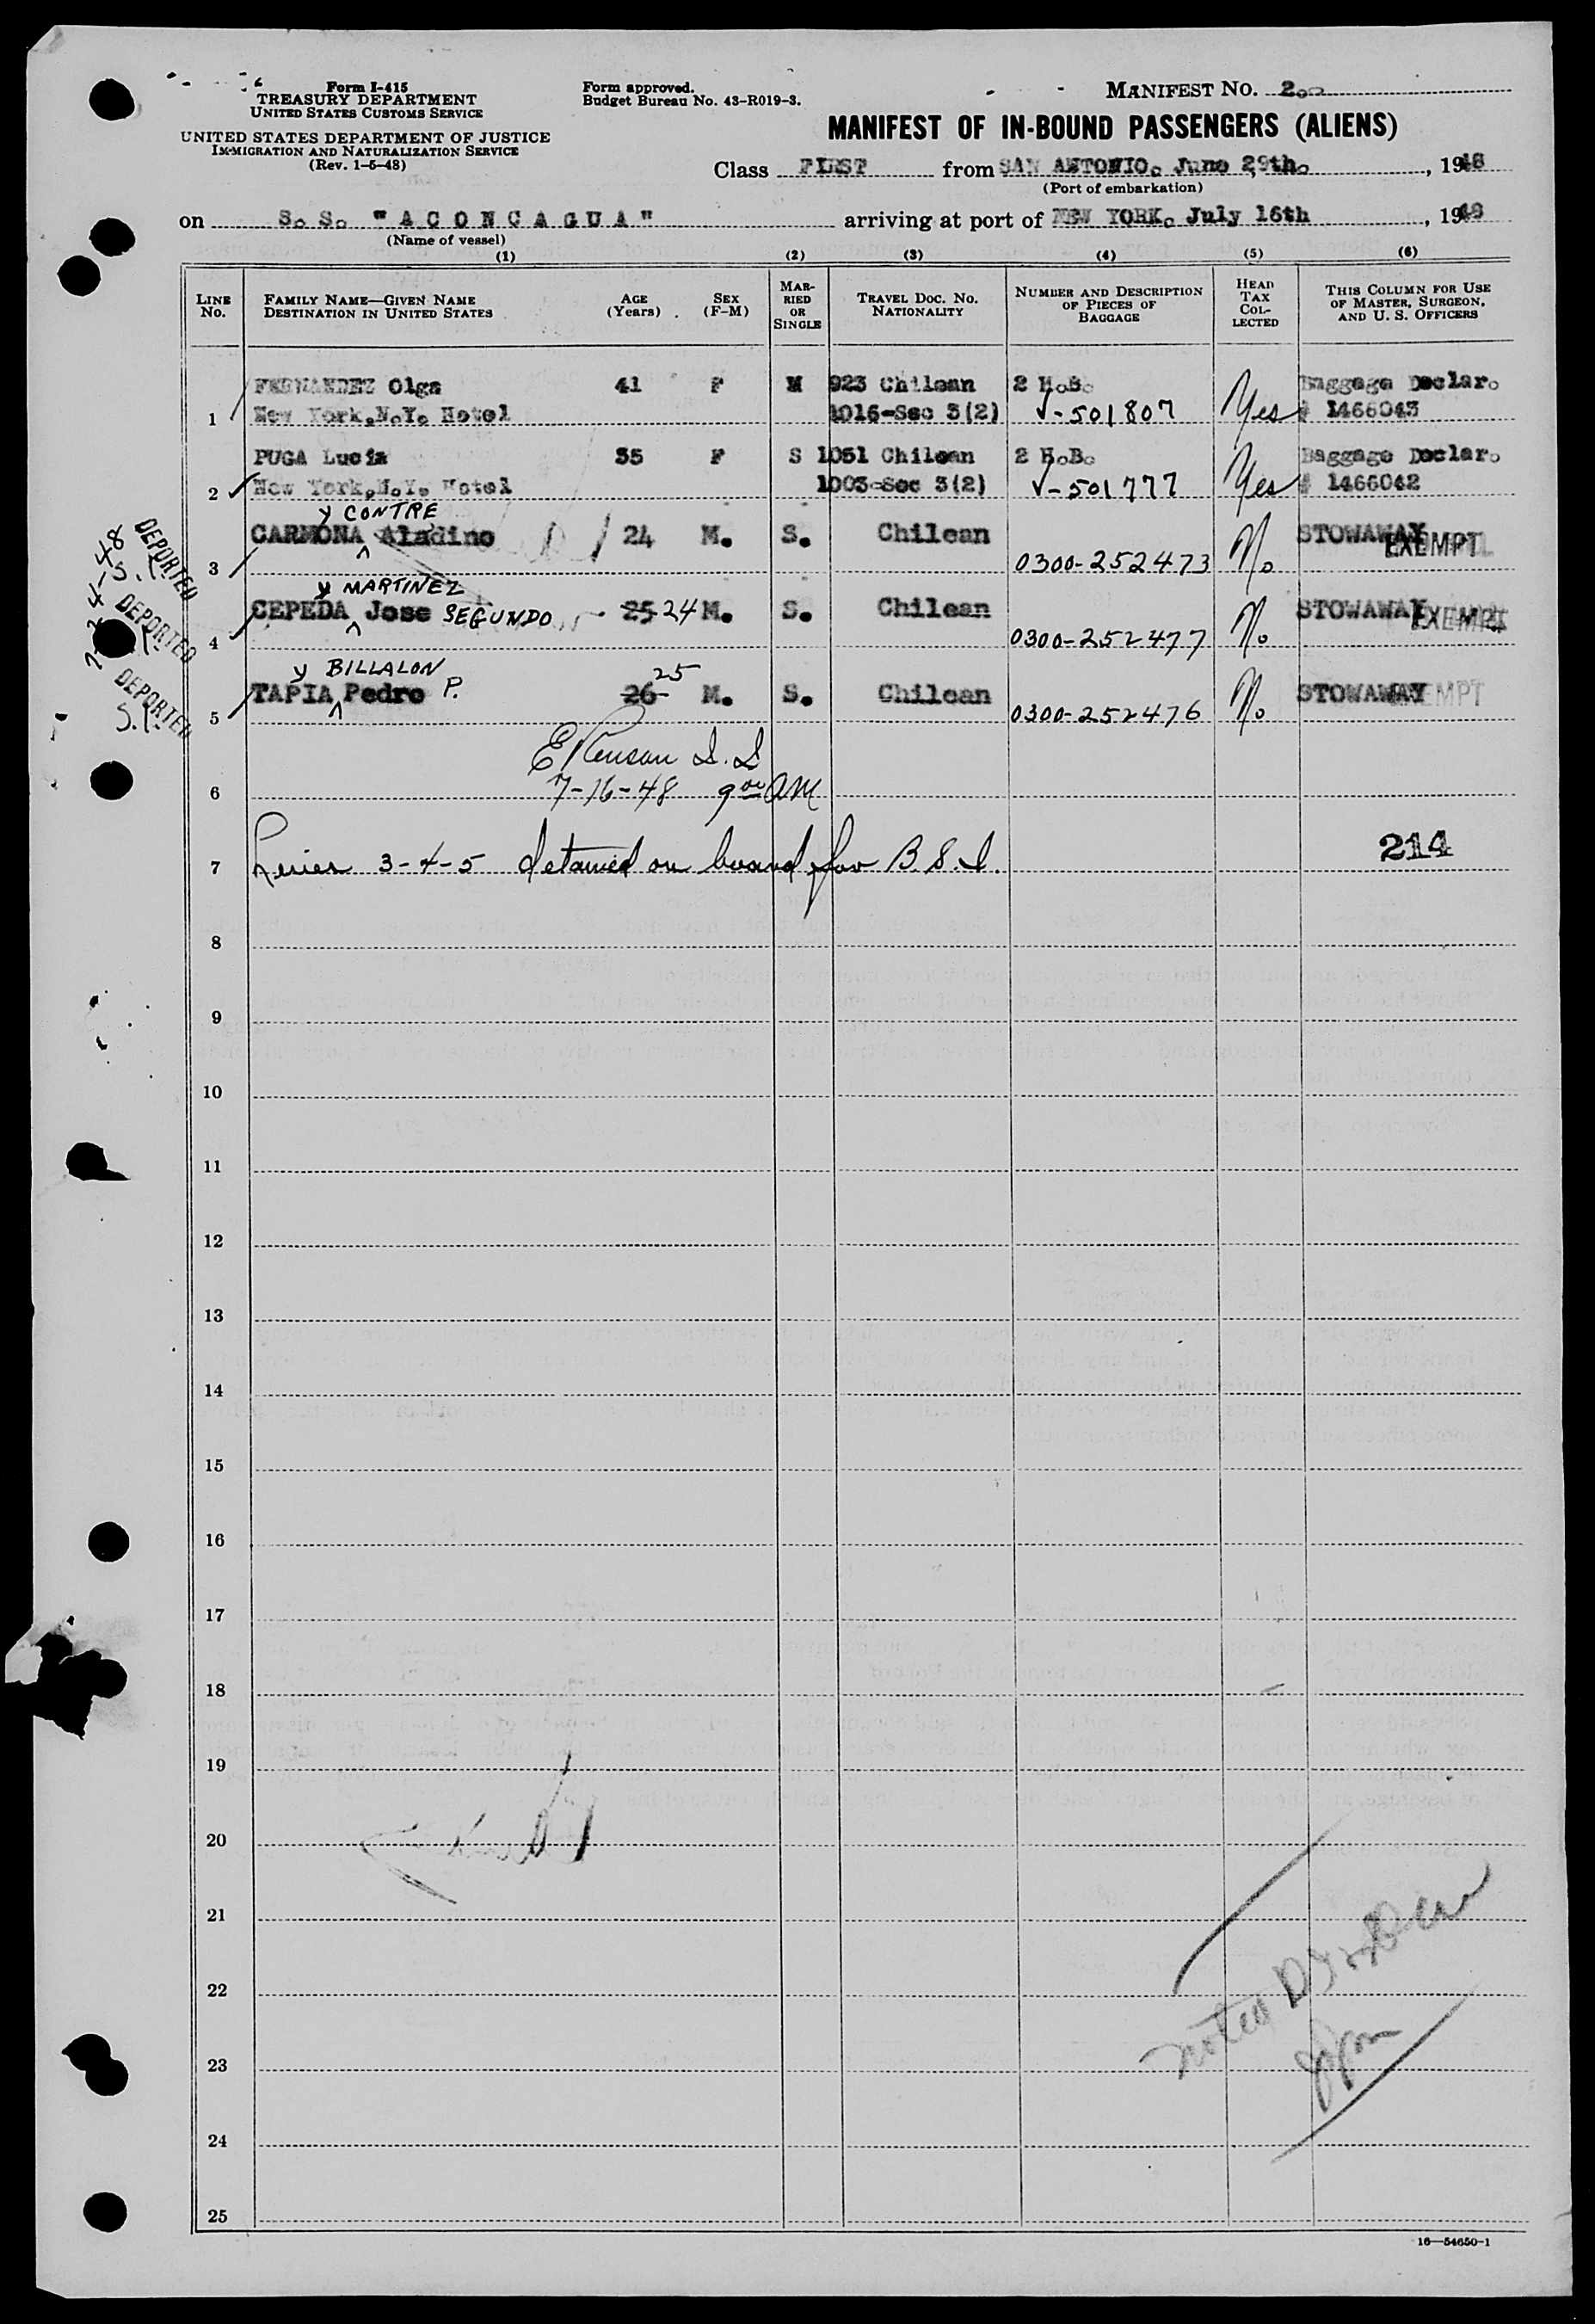 Form I-415
TREASURY DEPARTMENT
UNITED STATES CUSTOMS SERVICE
UNITED STATES DEPARTMENT OF JUSTICE
IMMIGRATION AND NATURALIZATION SERVICE
(Rev. 1-5-48)
Form approved.
Budget Bureau No. 43-R019-3.
MANIFEST NO. 2
MANIFEST OF IN-BOUND PASSENGERS (ALIENS)
Class FIRST from SAN ANTONIO. June 29th. , 1948
(Port of embarkation)
on S. S. "ACONCAGUA" arriving at port of NEW YORK. July 16th , 1948
(Name of vessel)
(1) (2) (3) (4) (5) (6)
LINE No.
FAMILY NAME—GIVEN NAME
DESTINATION IN UNITED STATES
AGE (Years)
SEX (F-M)
MARRIED OR SINGLE
TRAVEL DOC. NO. NATIONALITY
NUMBER AND DESCRIPTION OF PIECES OF BAGGAGE
HEAD TAX COLLECTED
THIS COLUMN FOR USE OF MASTER, SURGEON, AND U. S. OFFICERS
FERNANDEZ Olga 41 F M 923 Chilean 2 H.B. Baggage Declar.
1 New York,N.Y. Hotel 1016-Sec 3(2) V-501807 Yes # 1466043
PUGA Lucia 35 F S 1051 Chilean 2 H.B. Baggage Declar.
2 New York,N.Y. Hotel 1003-Sec 3(2) V-501777 Yes # 1466042
y CONTRE
CARMONA Aladino 24 M. S. Chilean STOWAWAY EXEMPT
3 0300-252473 No
y MARTINEZ
CEPEDA Jose SEGUNDO 25 24 M. S. Chilean STOWAWAY EXEMPT
4 0300-252477 No
y BILLALON 25
TAPIA Pedro P. 26 M. S. Chilean STOWAWAY EXEMPT
5 0300-252476 No
DEPORTED
DEPORTED
DEPORTED
6 7-16-48 9 00 AM
7 Lines 3-4-5 detained on board for B.S.I. 214
8
9
10
11
12
13
14
15
16
17
18
19
20
21
22
23
24
25
noted
16—54650-1